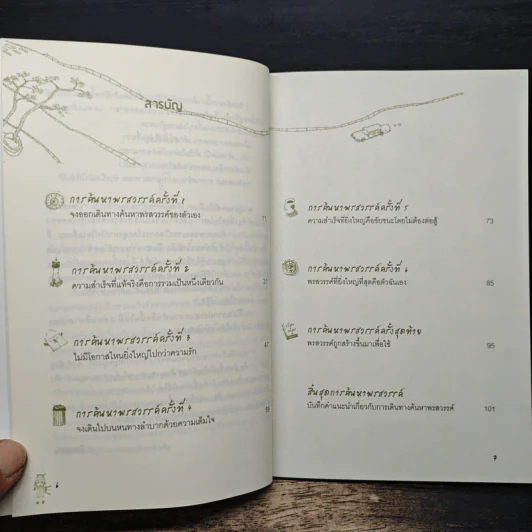 สารบัญ
การค้นหาพรสวรรค์ครั้งที่ 1
จงออกเดินทางค้นหาพรสวรรค์ของตัวเอง
11
การค้นหาพรสวรรค์ครั้งที่ 2
ความสำเร็จที่แท้จริงคือการรวมเป็นหนึ่งเดียวกัน
การค้นหาพรสวรรค์ครั้งที่ 3
ไม่มีโอกาสไหนยิ่งใหญ่ไปกว่าความรัก
47
การค้นหาพรสวรรค์ครั้งที่ 4
จงเดินไปบนหนทางลำบากด้วยความเต็มใจ
6
การค้นหาพรสวรรค์ครั้งที่ 5
ความสำเร็จที่ยิ่งใหญ่คือชัยชนะโดยไม่ต้องต่อสู้
73
การค้นหาพรสวรรค์ครั้งที่ 6
พรสวรรค์ที่ยิ่งใหญ่ที่สุดคือตัวฉันเอง
85
การค้นหาพรสวรรค์ครั้งสุดท้าย
พรสวรรค์ถูกสร้างขึ้นมาเพื่อใช้
95
สิ้นสุดการค้นหาพรสวรรค์
บันทึกคำแนะนำเกี่ยวกับการเดินทางค้นหาพรสวรรค์
101
7